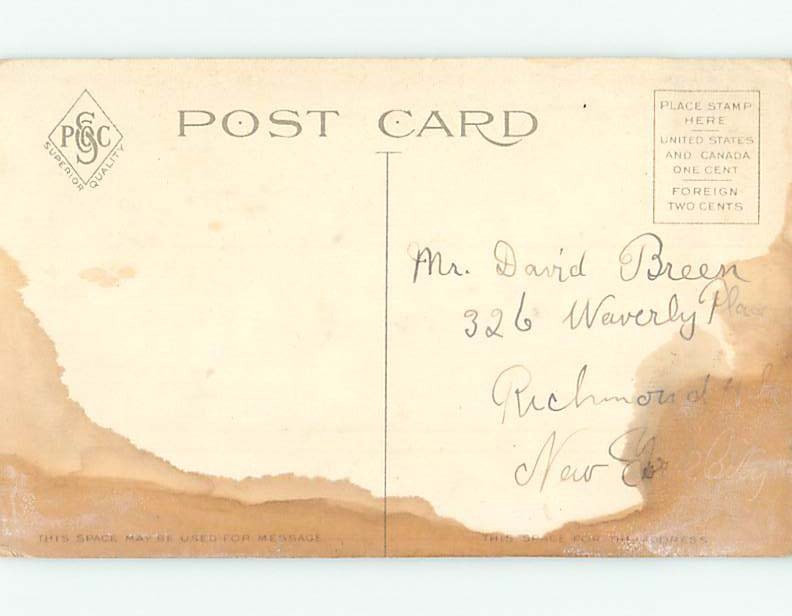 PS&CC
SUPERIOR QUALITY
POST CARD
PLACE STAMP
HERE
UNITED STATES
AND CANADA
ONE CENT
FOREIGN
TWO CENTS
Mr. David Breen
326 Waverly
Richmond
New
THIS SPACE MAY BE USED FOR MESSAGE
THIS SPACE FOR THE ADDRESS